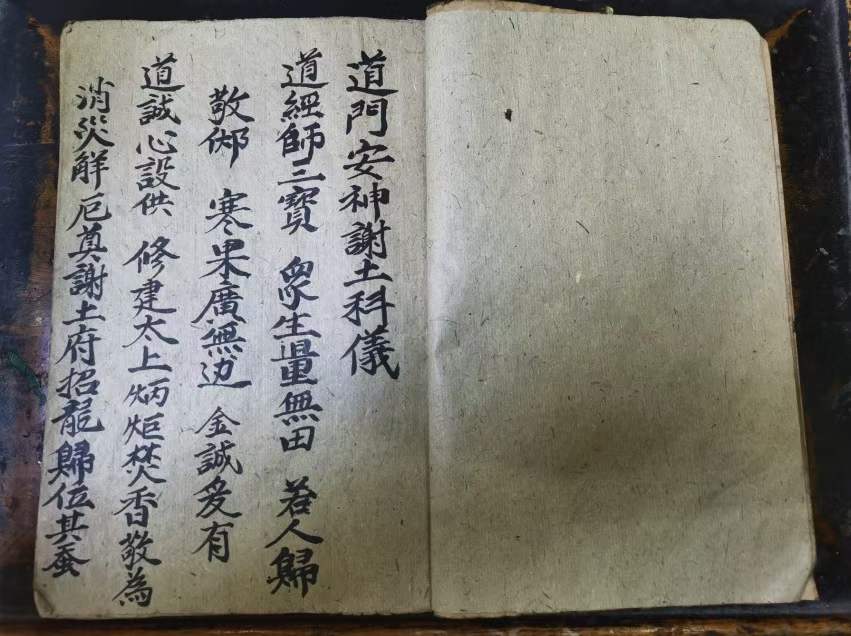 道門安神謝土科儀
道經師三寶 眾生量無田 若人歸
敬邺 寒果廣無边 金誠爰有
道誠心設供 修建太上炳炬焚香敬為
消災解厄奠謝土府招龍歸位其蚕